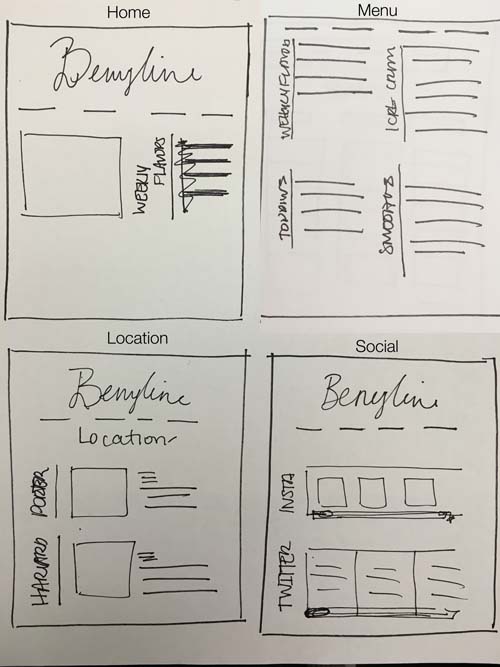 Home
Berryline
WEEKLY
FLAVORS
Menu
WEEKLY FLAVORS
CREAM
TOPPINGS
SMOOTHIES
Location
Berryline
Locations
PORTER
HARVARD
Social
Berryline
INSTA
TWITTER